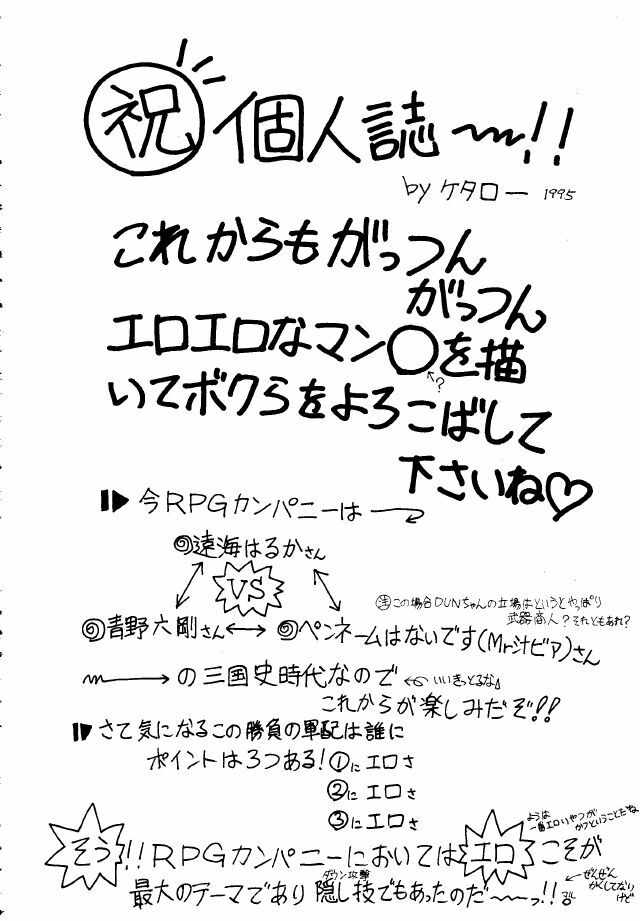 祝 個人誌〜!!
by ケタロー 1995
これからもがっつん
がっつん
エロエロなマン○を描
?
いてボクらをよろこばして
下さいね♡
今RPGカンパニーは
遠海はるかさん
VS
青野六剛さん ⟷ ペンネームはないです(Mr汁ビア)さん
注この場合DUNちゃんの立場はというとやっぱり
武器商人?それともあれ?
の三国史時代なので
いいきっとるな
これからが楽しみだぞ!!
さて気になるこの勝負の軍配は誰に
ポイントは3つある!①にエロさ
②にエロさ
③にエロさ
ようは
一番エロいやつが
かつということだね
そう!!RPGカンパニーにおいてはエロこそが
ダウン攻撃
最大のテーマであり隠し技でもあったのだ〜っ!!
ぜんぜん
かくしてない
けど